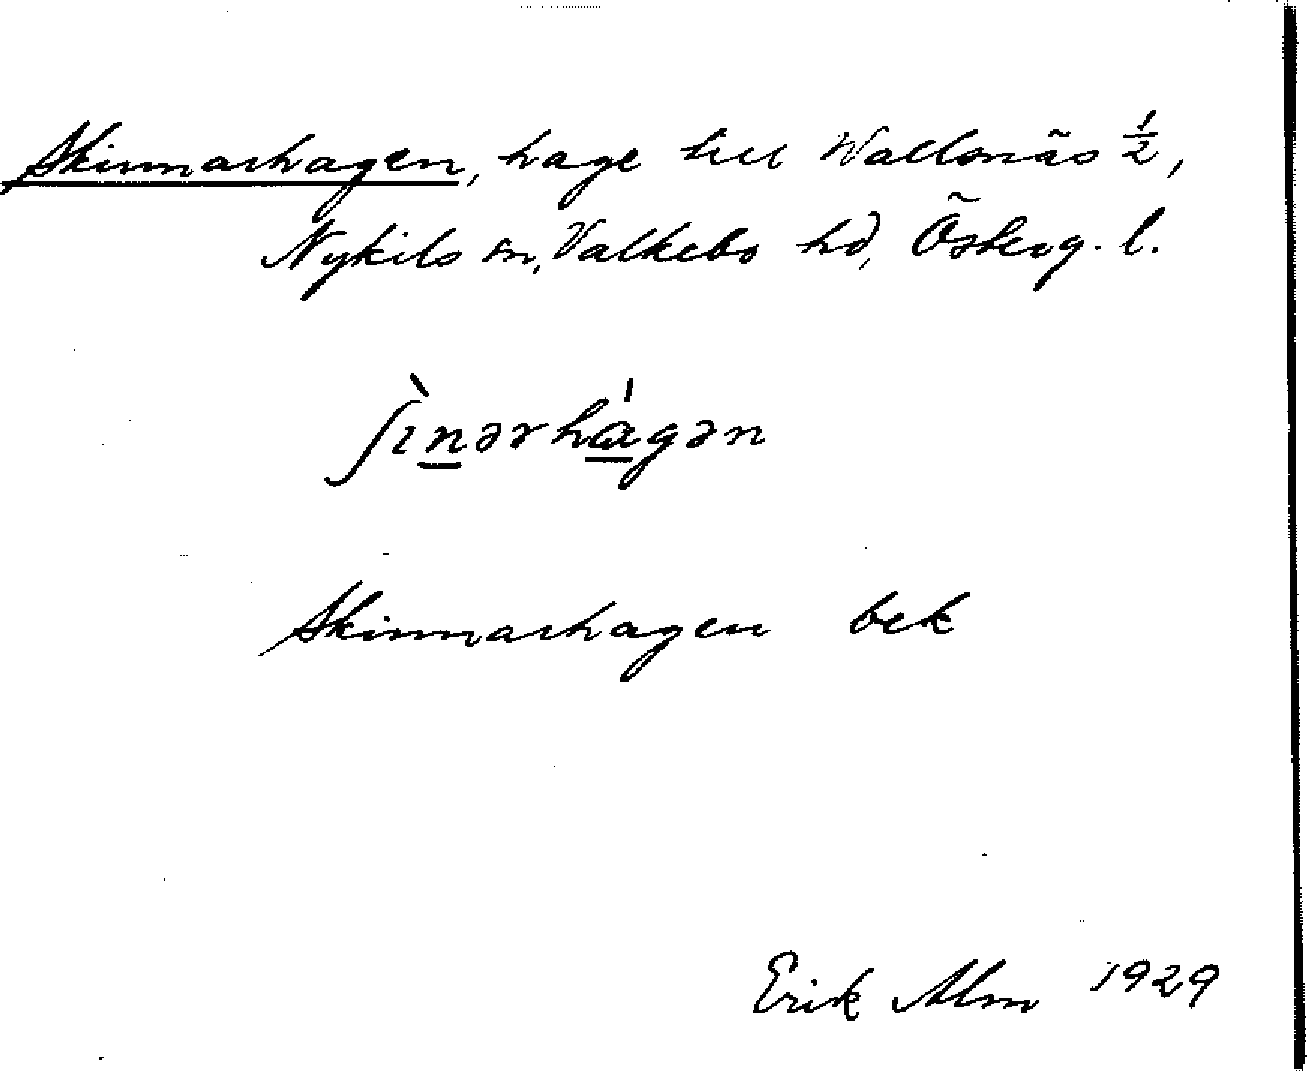 Skinnarhagen, hage till Wallsnäs 1/2,
Nykils sn, Valkebo hd, Österg. l.
ʃìnərhágən
Skinnarhagen bek
Erik Alm 1929